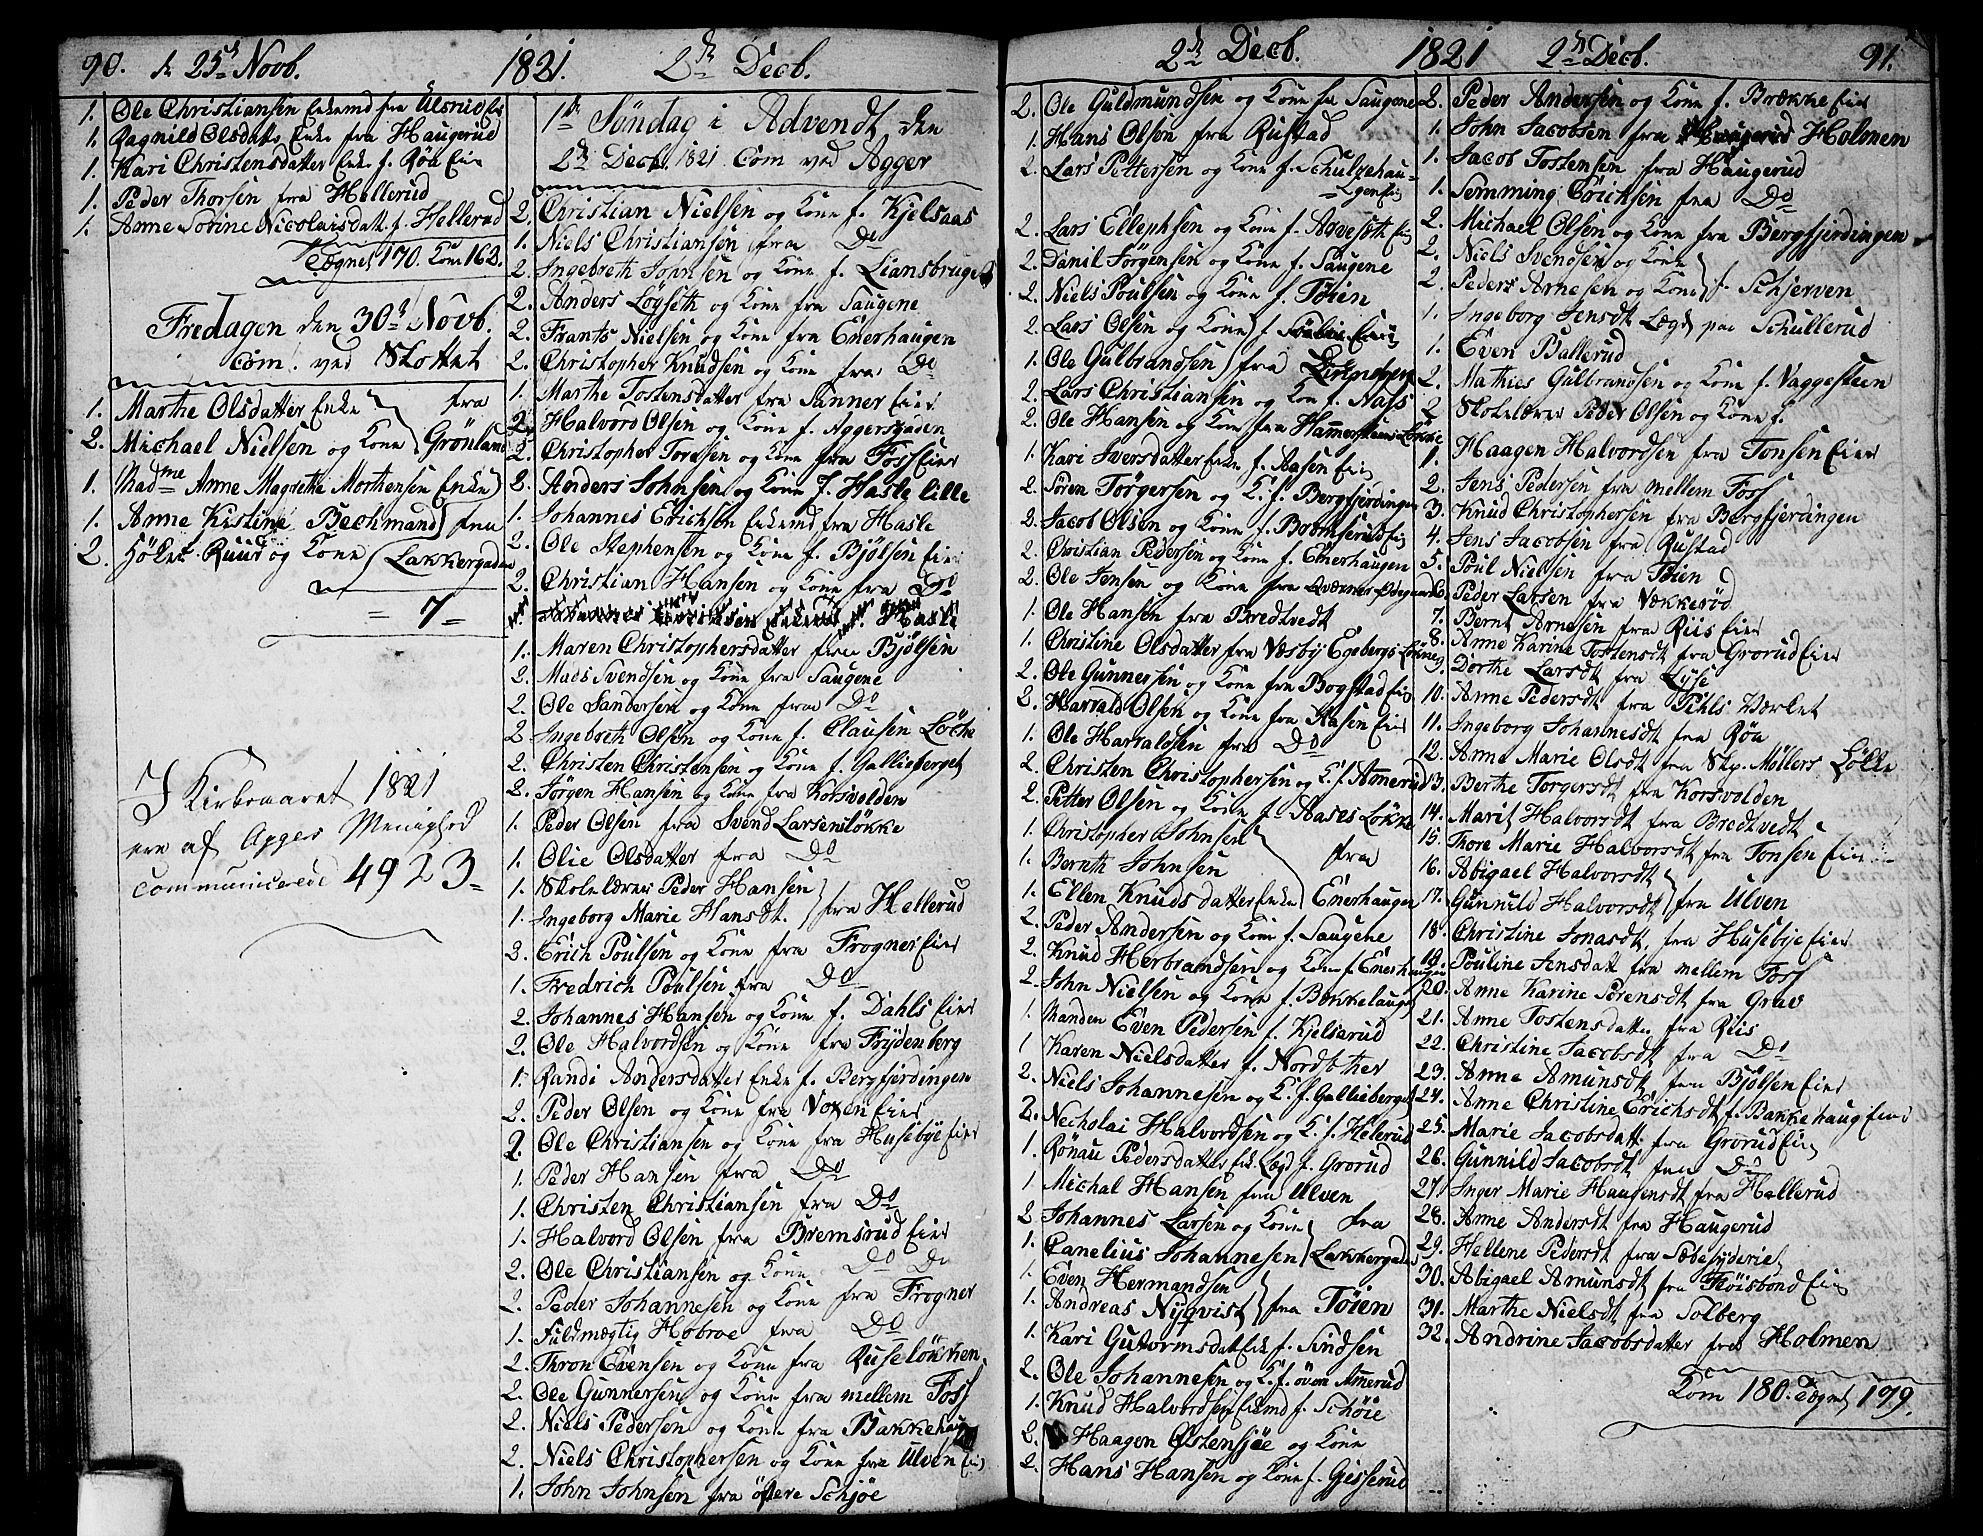 90. d 25de Novb. 1821. 2de Decb.
1. Ole Christiansen Enkemd fra Ulsrud Eie
1. Ragnild Olsdatter Enke fra Haugerud
1. Kari Christensdatter Enke f. Røa Eie
1. Peder Thorsen fra Hellerud
1. Anne Sovine Nicolaisdatt. f. Hellerud
Tegnet 170. Kom 162.
Fredagen den 30de Novb.
Com. ved Slottet
1. Marthe Olsdatter Enke fra
2. Michael Nielsen og Kone Grønland
1. Madme Anne Magrethe Morthensen Enke
1. Anne Kistine Bechmand fra
2. Høker Ruur og Kone Lakkergaden
= 7 =
I Kirkeaaret 1821
ere af Agger Menighed
communicerede 4923=
1de Søndag i Advendt den
2de Decb. 1821 Com ved Agger
2. Christian Nielsen og Kone f. Kjelsaas
1. Niels Christiansen fra Do
2. Ingebreth Johnsen og Kone f. Liansbruget
2. Anders Løyseth og Kone fra Saugene
2. Frants Nielsen og Kone fra Enerhaugen
2. Christopher Knudsen og Kone fra Do
1. Marthe Tostensdatter fra Sanner Eier
2. Halvord Olsen og Kone f. Aggersgaden
2. Christopher Toresen og Kone fra Foss Eier
2. Anders Johnsen og Kone f. Hasle lille
1. Johannes Erichsen Enkemd fra Hasle
2. Ole Stephensen og Kone f. Bjølsen Eier
2. Christian Hansen og Kone fra Do
1. Maren Christophersdatter fra Bjølsen
2. Mads Svendsen og Kone fra Saugene
2. Ole Sandersen og Kone fra Do
2 Ingebreth Olsen og Kone f. Clausen Løche
2. Christen Christensen og Kone f. Gallieberget
2. Jørgen Hansen og Kone fra Korsvolden
1. Peder Olsen fra Svend Larsensløkke
1. Olie Olsdatter fra Do
1. Skolelærer Peder Hansen
1. Ingeborg Marie Hansdt. fra Hellerud
3. Erich Poulsen og Kone fra Frogner Eier
1. Fredrich Poulsen fra Do
2. Johannes Hansen og Kone f. Dahls Eier
2. Ole Halvordsen og Kone fra Frydenberg
1. Randi Andersdatter Enke f. Bergfjerdingen
2. Peder Olsen og Kone fra Voxen Eier
2. Ole Christiansen og Kone fra Husebye Eier
1. Peder Hansen fra Do
1. Christen Christiansen fra Do
1. Halvord Olsen fra Bremsrud Eier
2. Ole Christiansen og Kone Do Do
2. Peder Johannesen og Kone fra Frogner
1. Fuldmægtig Hobroe fra Do
2. Thron Evensen og Kone fra Ruseløkken
2. Ole Gunnersen og Kone fra mellem Foss
2. Niels Pedersen og Kone fra Bakkehaug
2. Niels Christophersen og Kone fra Ulven Eie
1. John Johnsen fra øvere Schjøe
2de Decb. 1821 2de Decb. 91.
2. Ole Guldmundsen og Kone fra Saugene
1. Hans Olsen fra Rustad
2. Lars Pettersen og Kone f. Schulzehau-
=gen Eie
2. Lars Ellephsen og Kone f. Arvesæth Eie
2. Danil Jørgensen og Kone f. Saugene
2. Niels Poulsen og Kone f. Tøien
2. Lars Olsen og Kone f Eier
1. Ole Gulbrandsen fra
2. Lars Christiansen og Kon f. Naes
2. Ole Hansen og Kone fra Hammersteens Løkke
1. Kari Iversdatter Enke f. Aasen Eie
2. Søren Torgersen og K. f. Bergfjerdingen
2. Jacob Olsen og Kone f. Bremserud Eie
2. Christian Pedersen og Kone f. Enerhaugen
2. Ole Jensen og Kone fra Qværner Ødegaard
1. Ole Hansen fra Bredtvedt
1. Christine Olsdatter fra Væsby Egebergs Løkke
2. Ole Gunnersen og Kone fra Bogstad Eie
2. Harvald Olsen og Kone fra Aasen Eier
1. Ole Harvaldsen fra Do
2. Christen Christophersen og K. f. Amerud
2. Petter Olsen og Kone f. Aases Løkke
1. Christopher Johnsen
1. Bernth Johnsen fra
1. Ellen Knudsdatter Enke Enerhaugen
2. Peder Andersen og Kone f. Saugene
2. Knud Herbrandsen og Kone f. Enerhaugen
2. John Nielsen og Kone f. Bækkelauget
1. Manden Even Pedersen f. Kjelsarud
1 Karen Nielsdatter f. Nordsther
2. Niels Johannesen og K. f. Gallieberget
2. Necholai Halvordsen og K. f. Helerud
1. Rønau Pedersdatter Enk. Lægd f. Grorud
1 Michal Hansen fra Ulven
2 Johannes Larsen og Kone fra
1. Canelius Johannesen Lakkergaden
1. Even Hermandsen
1. Andreas Nyqvist fra Tøien
1. Kari Gutormsdatt Enk f. Sindsen
2. Ole Johannesen og K. f. øvre Amerud
1. Knud Halvordsen Enkemd f. Schøie
2. Haagen Østensjøe og Kone
2. Hans Hansen og Kone f. Gisserud
2. Peder Andersen og Kone f. Brække Eier
1. John Jacobsen fra Holmen
1. Jacob Tostensen fra Haugerud
1. Semming Erichsen fra Do
2. Michael Olsen og Kone fra Bergfjerdingen
2. Niels Svendsen og Kone
2 Peders Arnesen og Kone f. Schjerven
1. Ingeborg Jensdt Lægd paa Schullerud
1. Even Ballerud
2. Mathies Gulbrandsen og Kone f. Vaggesteen
2 Skolelærer Peder Olsen og Kone f.
1. Haagen Halvordsen fra Tonsen Eier
2. Jens Pedersen fra mellem Foss
3. Knud Christophersen fra Bergfjerdingen
4. Jens Jacobsen fra Rustad
5. Poul Nielsen fra Tøien
6. Peder Larsen fra Vækkerød
7. Bernt Arnesen fra Riis Eier
8. Anne Karine Tostensdt fra Grorud Eier
9. Dorthe Larsdt fra Lyse
10. Anne Pedersdt fra Pihls Værket
11. Ingeborg Johannesdt fra Røa
12. Anne Marie Olsdt fra Skp. Møllers Løkke
13. Berthe Torgersdt fra Korsvolden
14. Marit Halvorsdt fra Bredtvedt
15. Thore Marie Halvorsdt fra Tonsen Eier
16. Abigael Halvorsdt
17. Gunnild Halvorsdt fra Ulven
18. Christine Jonasdt. fra Husebye Eier
19. Pouline Jensdatt fra mellem Foss
20. Anne Karine Sørensdt fra Grav
21. Anne Tostensdatt. fra Riis
22. Christine Jacobsdt fra Do
23. Anne Amunsdt fra Bjølsen Eier
24. Anne Christine Erichsdt f. Bakkehaug Eier
25. Marie Jacobsdatt. fra Grorud Eie
26. Gunnild Jacobsdt fra Do
27. Inger Marie Haugensdt fra Hellerud
28. Anne Andersdt fra Haugerud
29. Hellene Pedersdt fra Sæbesyderiet
30. Abigael Amunsdt fra Fløisbond Eier
31. Marthe Nielsdt fra Solberg
32. Andrine Jacobsdatter fra Holmen
Kom 180. Tegnet 199.